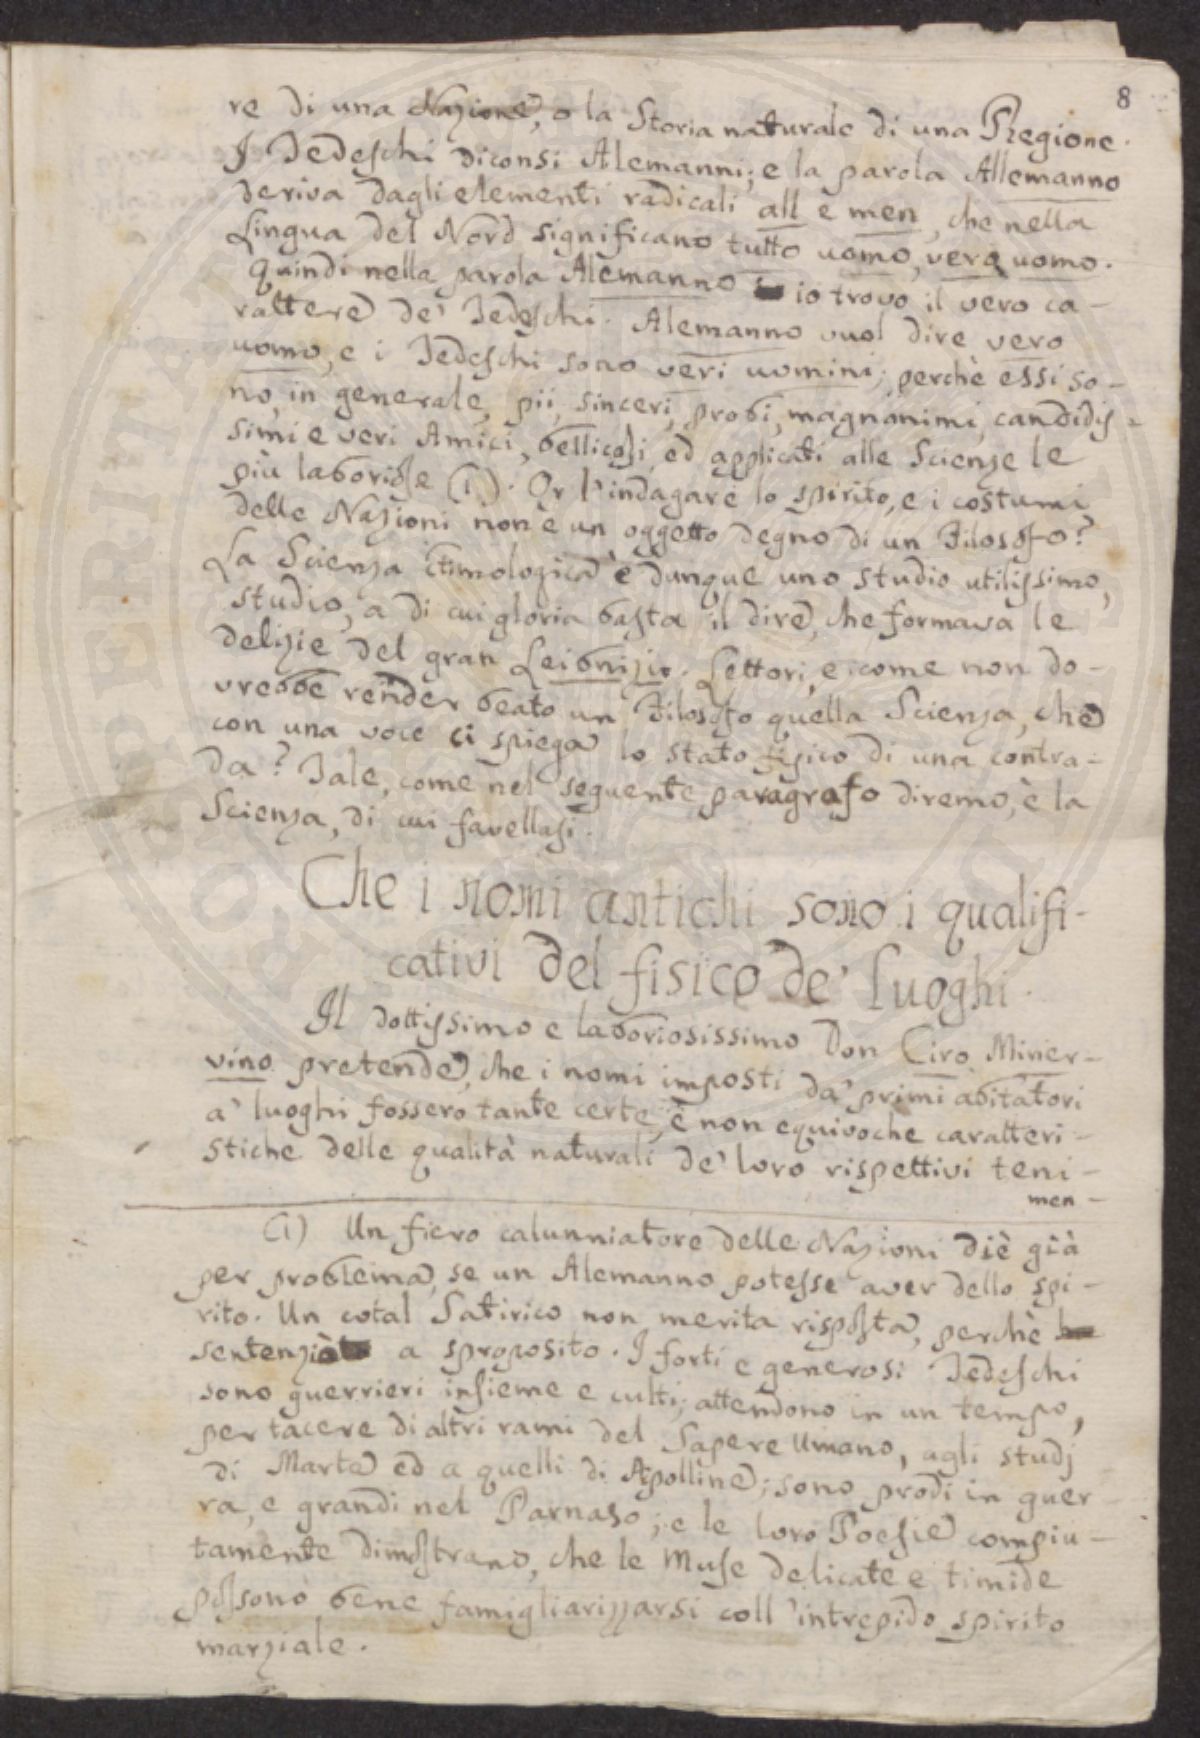 8
re di una Nazione, o la Storia naturale di una Regione.
I Tedeschi diconsi Alemanni; e la parola Allemanno
deriva dagli elementi radicali all e men, che nella
Lingua del Nord significano tutto uomo, vero uomo.
Quindi nella parola Alemanno io trovo il vero ca-
rattere de' Tedeschi. Alemanno vuol dire vero
uomo, e i Tedeschi sono veri uomini; perchè essi so-
no, in generale, pii, sinceri, probi, magnanimi, candidis-
simi e veri Amici, bellicosi, ed applicati alle Scienze le
più laboriose (1). Or l'indagare lo spirito, e i costumi
delle Nazioni non è un oggetto degno di un Filosofo?
La Scienza Etimologica è dunque uno studio utilissimo,
studio, a di cui gloria basta il dire, che formava le
delizie del gran Leibnizio. Lettori, e come non do-
vrebbe render beato un Filosofo quella Scienza, che
con una voce ci spiega lo stato fisico di una contra-
da? Tale, come nel seguente paragrafo diremo, è la
Scienza, di cui favellasi.
Che i nomi antichi sono i qualifi-
cativi del fisico de' luoghi.
Il dottissimo e laboriosissimo Don Ciro Miner-
vino pretende, che i nomi imposti da' primi abitatori
a' luoghi fossero tante certe, e non equivoche caratteri-
stiche delle qualità naturali de' loro rispettivi teni-
men-
(1) Un fiero calunniatore delle Nazioni diè già
per problema, se un Alemanno potesse aver dello spi-
rito. Un cotal Satirico non merita risposta, perchè
sentenziò a sproposito. I forti e generosi Tedeschi
sono guerrieri insieme e culti; attendono in un tempo,
per tacere di altri rami del Sapere Umano, agli studj
di Marte ed a quelli di Apolline; sono prodi in guer-
ra, e grandi nel Parnaso; e le loro Poesie compiu-
tamente dimostrano, che le Muse delicate e timide
possono bene famigliarizzarsi coll'intrepido spirito
marziale.